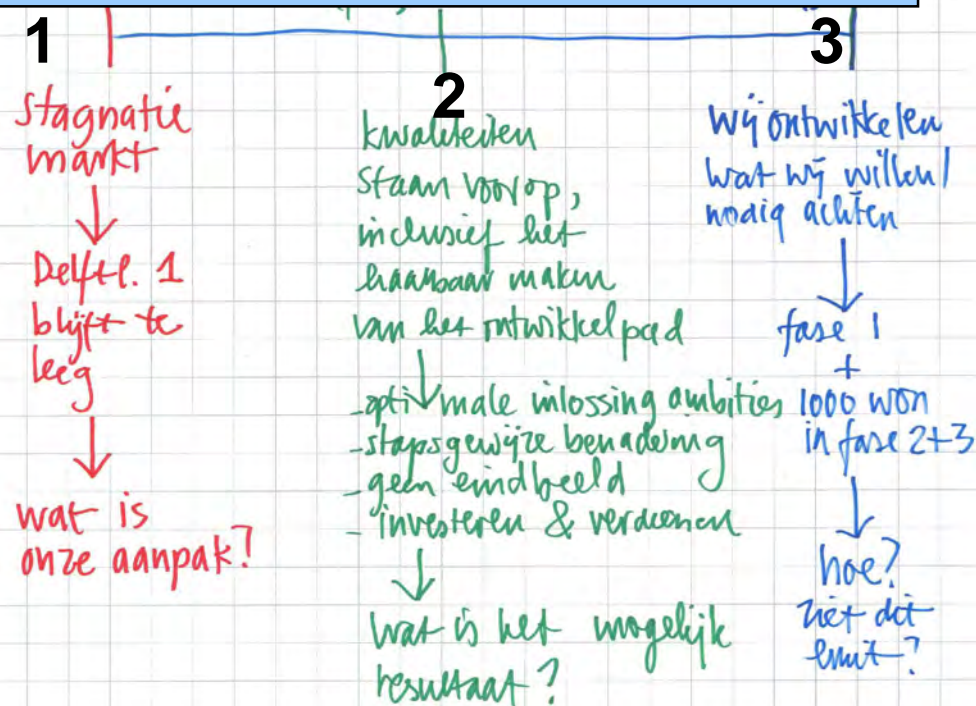 1
stagnatie
markt
Delftl. 1
blijft te
leeg
wat is
onze aanpak?
2
kwaliteiten
staan voorop,
inclusief het
haalbaar maken
van het ontwikkelpad
-optimale inlossing ambities
-stapsgewijze benadering
-geen eindbeeld
-investeren & verdienen
wat is het mogelijk
resultaat?
3
wij ontwikkelen
wat wij willen/
nodig achten
fase 1
+
1000 won
in fase 2+3
hoe?
ziet dit
eruit?